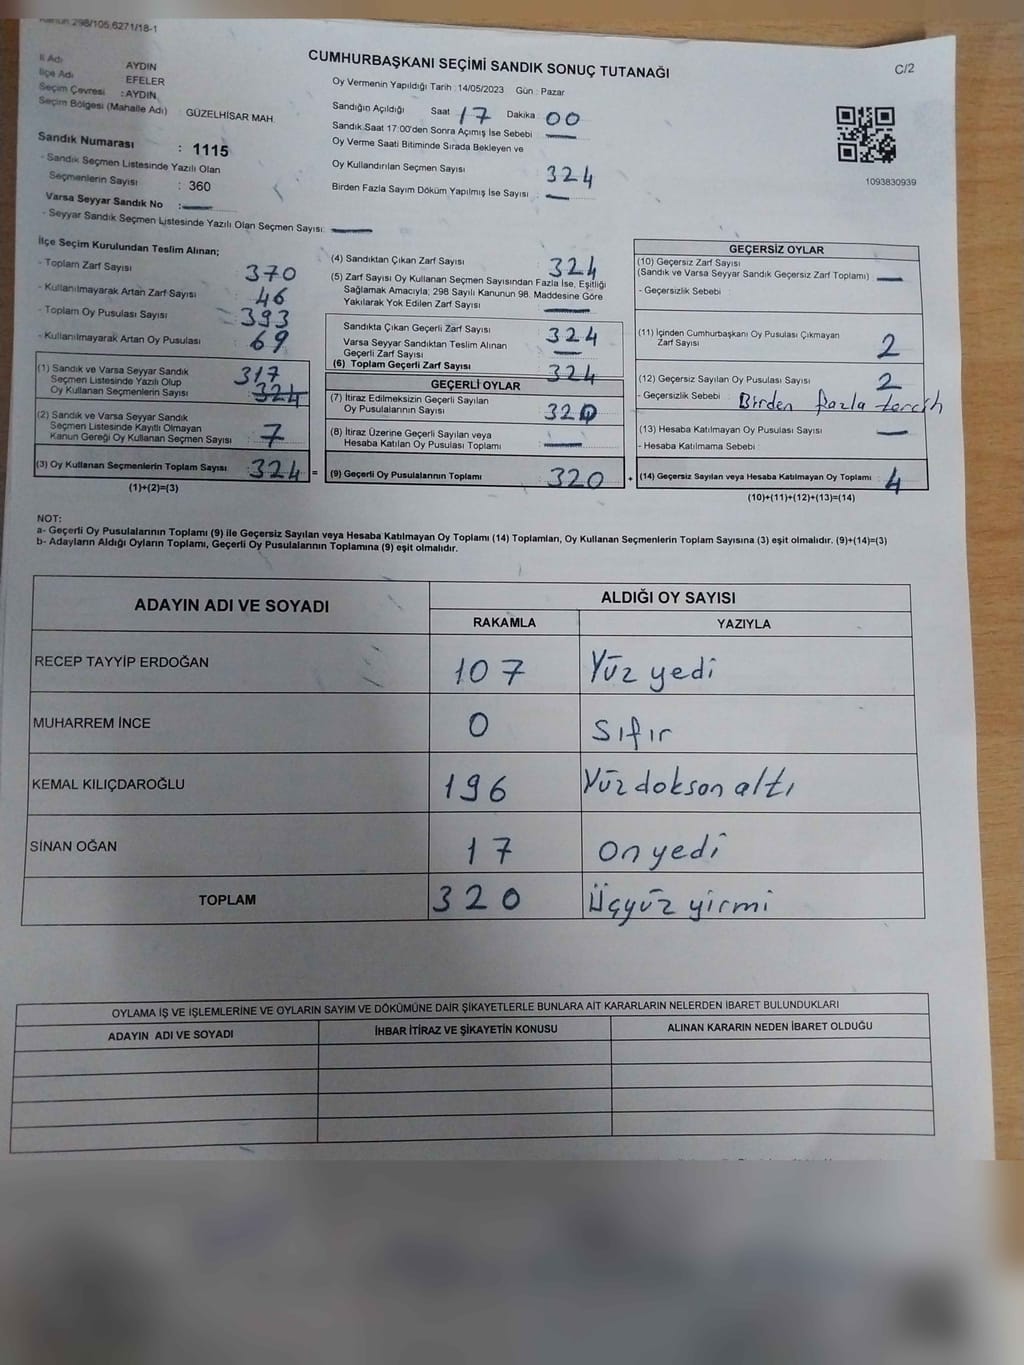 Kanun:298/105.6271/18-1
CUMHURBAŞKANI SEÇİMİ SANDIK SONUÇ TUTANAĞI
C/2
İl Adı AYDIN
İlçe Adı EFELER
Seçim Çevresi : AYDIN
Seçim Bölgesi (Mahalle Adı) GÜZELHİSAR MAH.
Oy Vermenin Yapıldığı Tarih : 14/05/2023 Gün : Pazar
Sandığın Açıldığı Saat 17 Dakika 00
Sandık Saat 17:00'den Sonra Açımış İse Sebebi
Oy Verme Saati Bitiminde Sırada Bekleyen ve
Oy Kullandırılan Seçmen Sayısı 324
Birden Fazla Sayım Döküm Yapılmış İse Sayısı
1093830939
Sandık Numarası : 1115
- Sandık Seçmen Listesinde Yazılı Olan
Seçmenlerin Sayısı : 360
Varsa Seyyar Sandık No :
- Seyyar Sandık Seçmen Listesinde Yazılı Olan Seçmen Sayısı:
İlçe Seçim Kurulundan Teslim Alınan;
- Toplam Zarf Sayısı 370
- Kullanılmayarak Artan Zarf Sayısı 46
- Toplam Oy Pusulası Sayısı 393
- Kullanılmayarak Artan Oy Pusulası 69
(1) Sandık ve Varsa Seyyar Sandık
Seçmen Listesinde Yazılı Olup
Oy Kullanan Seçmenlerin Sayısı 317 324
(2) Sandık ve Varsa Seyyar Sandık
Seçmen Listesinde Kayıtlı Olmayan
Kanun Gereği Oy Kullanan Seçmen Sayısı 7
(3) Oy Kullanan Seçmenlerin Toplam Sayısı 324 =
(1)+(2)=(3)
(4) Sandıktan Çıkan Zarf Sayısı 324
(5) Zarf Sayısı Oy Kullanan Seçmen Sayısından Fazla İse, Eşitliği
Sağlamak Amacıyla; 298 Sayılı Kanunun 98. Maddesine Göre
Yakılarak Yok Edilen Zarf Sayısı
Sandıkta Çıkan Geçerli Zarf Sayısı 324
Varsa Seyyar Sandıktan Teslim Alınan
Geçerli Zarf Sayısı
(6) Toplam Geçerli Zarf Sayısı 324
GEÇERLİ OYLAR
(7) İtiraz Edilmeksizin Geçerli Sayılan
Oy Pusulalarının Sayısı 320
(8) İtiraz Üzerine Geçerli Sayılan veya
Hesaba Katılan Oy Pusulası Toplamı
(9) Geçerli Oy Pusulalarının Toplamı 320 +
GEÇERSİZ OYLAR
(10) Geçersiz Zarf Sayısı
(Sandık ve Varsa Seyyar Sandık Geçersiz Zarf Toplamı)
- Geçersizlik Sebebi :
(11) İçinden Cumhurbaşkanı Oy Pusulası Çıkmayan
Zarf Sayısı 2
(12) Geçersiz Sayılan Oy Pusulası Sayısı 2
- Geçersizlik Sebebi : Birden fazla tercih
(13) Hesaba Katılmayan Oy Pusulası Sayısı
- Hesaba Katılmama Sebebi :
(14) Geçersiz Sayılan veya Hesaba Katılmayan Oy Toplamı : 4
(10)+(11)+(12)+(13)=(14)
NOT:
a- Geçerli Oy Pusulalarının Toplamı (9) ile Geçersiz Sayılan veya Hesaba Katılmayan Oy Toplamı (14) Toplamları, Oy Kullanan Seçmenlerin Toplam Sayısına (3) eşit olmalıdır. (9)+(14)=(3)
b- Adayların Aldığı Oyların Toplamı, Geçerli Oy Pusulalarının Toplamına (9) eşit olmalıdır.
ADAYIN ADI VE SOYADI ALDIĞI OY SAYISI
RAKAMLA YAZIYLA
RECEP TAYYİP ERDOĞAN 107 Yüz yedi
MUHARREM İNCE 0 Sıfır
KEMAL KILIÇDAROĞLU 196 Yüz dokson altı
SİNAN OĞAN 17 on yedi
TOPLAM 320 Üçyüz yirmi
OYLAMA İŞ VE İŞLEMLERİNE VE OYLARIN SAYIM VE DÖKÜMÜNE DAİR ŞİKAYETLERLE BUNLARA AİT KARARLARIN NELERDEN İBARET BULUNDUKLARI
ADAYIN ADI VE SOYADI İHBAR İTİRAZ VE ŞİKAYETİN KONUSU ALINAN KARARIN NEDEN İBARET OLDUĞU